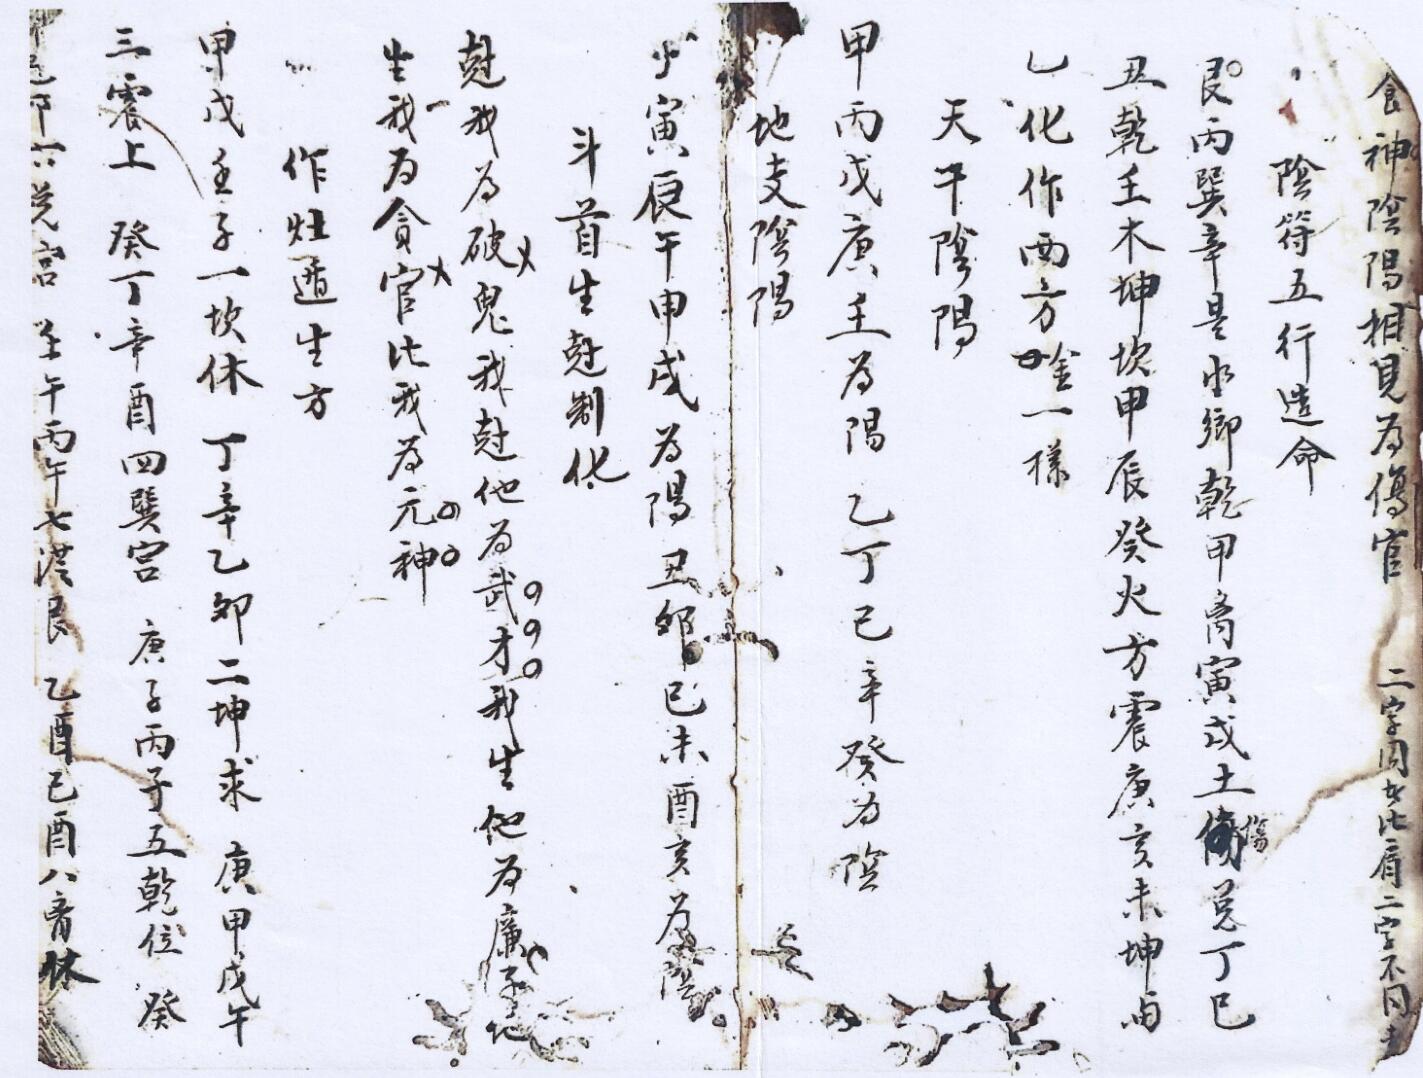 食神陰陽相見為傷官 二字同

比肩二字不同
陰符五行造命
艮丙巽辛是水鄉乾甲寅戌土傷兌丁巳
丑乾壬木坤坎甲辰癸火方震庚亥未坤由
乙化作西方金一樣
天干陰陽
甲丙戊庚壬為陽 乙丁己辛癸為陰
地支陰陽
寅辰午申戌為陽丑卯巳未酉亥为陰
斗首生尅制化
尅我為破鬼我尅他為武才我生他為廉子他
生我为貪官比我為元神
作灶遁生方
甲戌壬子一坎休 丁辛乙卯二坤求 庚甲戊午
三震上 癸丁辛酉四巽宮 庚子丙子五乾位 癸
卯六兌宮 午丙午七艮 乙酉己酉八离休